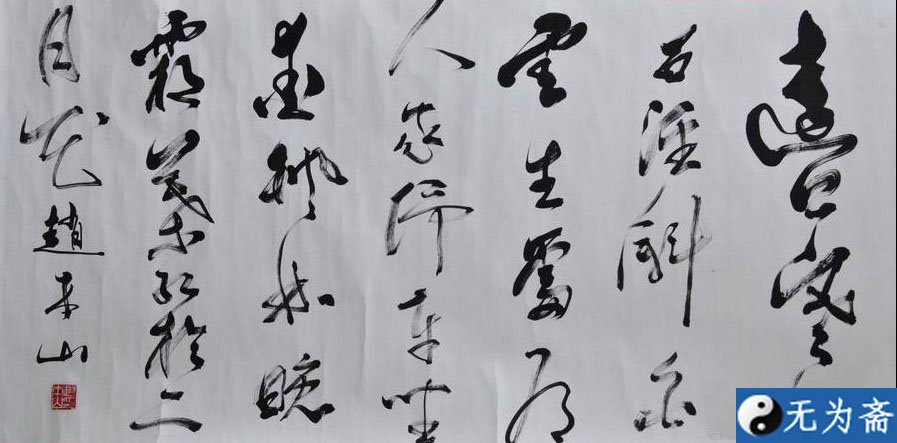 遠上寒山
石徑斜白
雲生處有
人家停車坐
愛楓林晚
霜葉紅於二
月花趙本山
无为斋